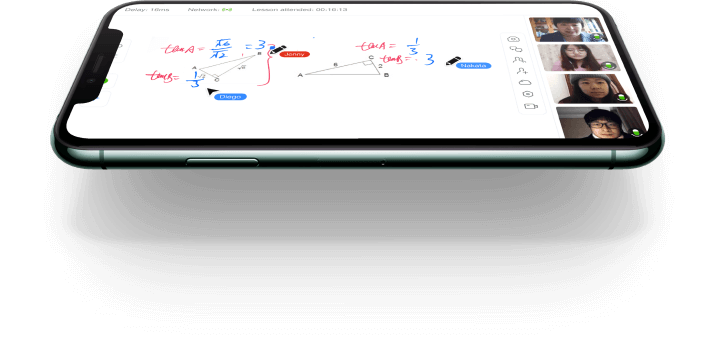 Delay: 16ms Network: Lesson attended: 00:16:15
tanA = √6/√2 = 3
Jenny
tanB = 1/3
A B C
Diego
tanA = 1/3
tanB = 3
Nakata
A 6 C 2 B